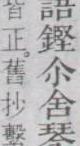 語鏗尒舍琴
皆正。舊抄繫